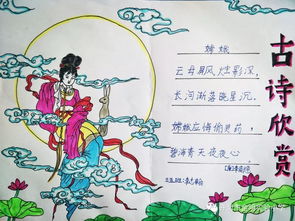 古诗欣赏
嫦娥
云母屏风烛影深，
长河渐落晓星沉。
嫦娥应悔偷灵药，
碧海青天夜夜心